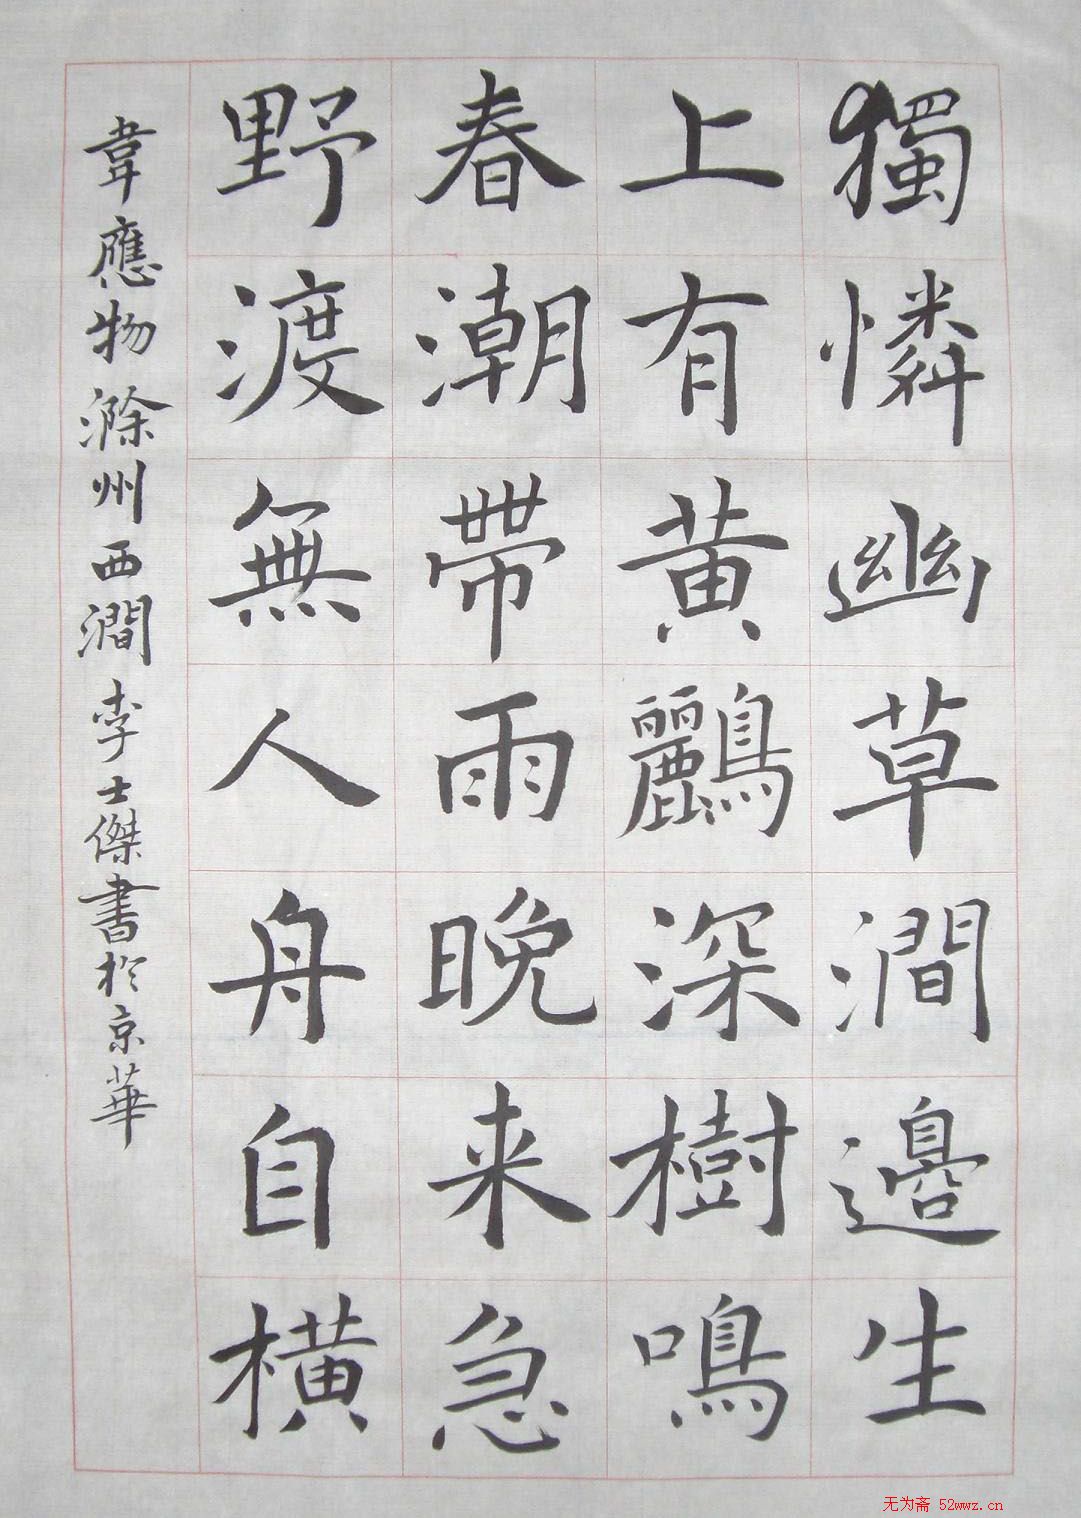 獨憐幽草澗邊生
上有黃鸝深樹鳴
春潮帶雨晚来急
野渡無人舟自横
韋應物滁州西澗李士傑書於京華
无为斋 52wwz.cn